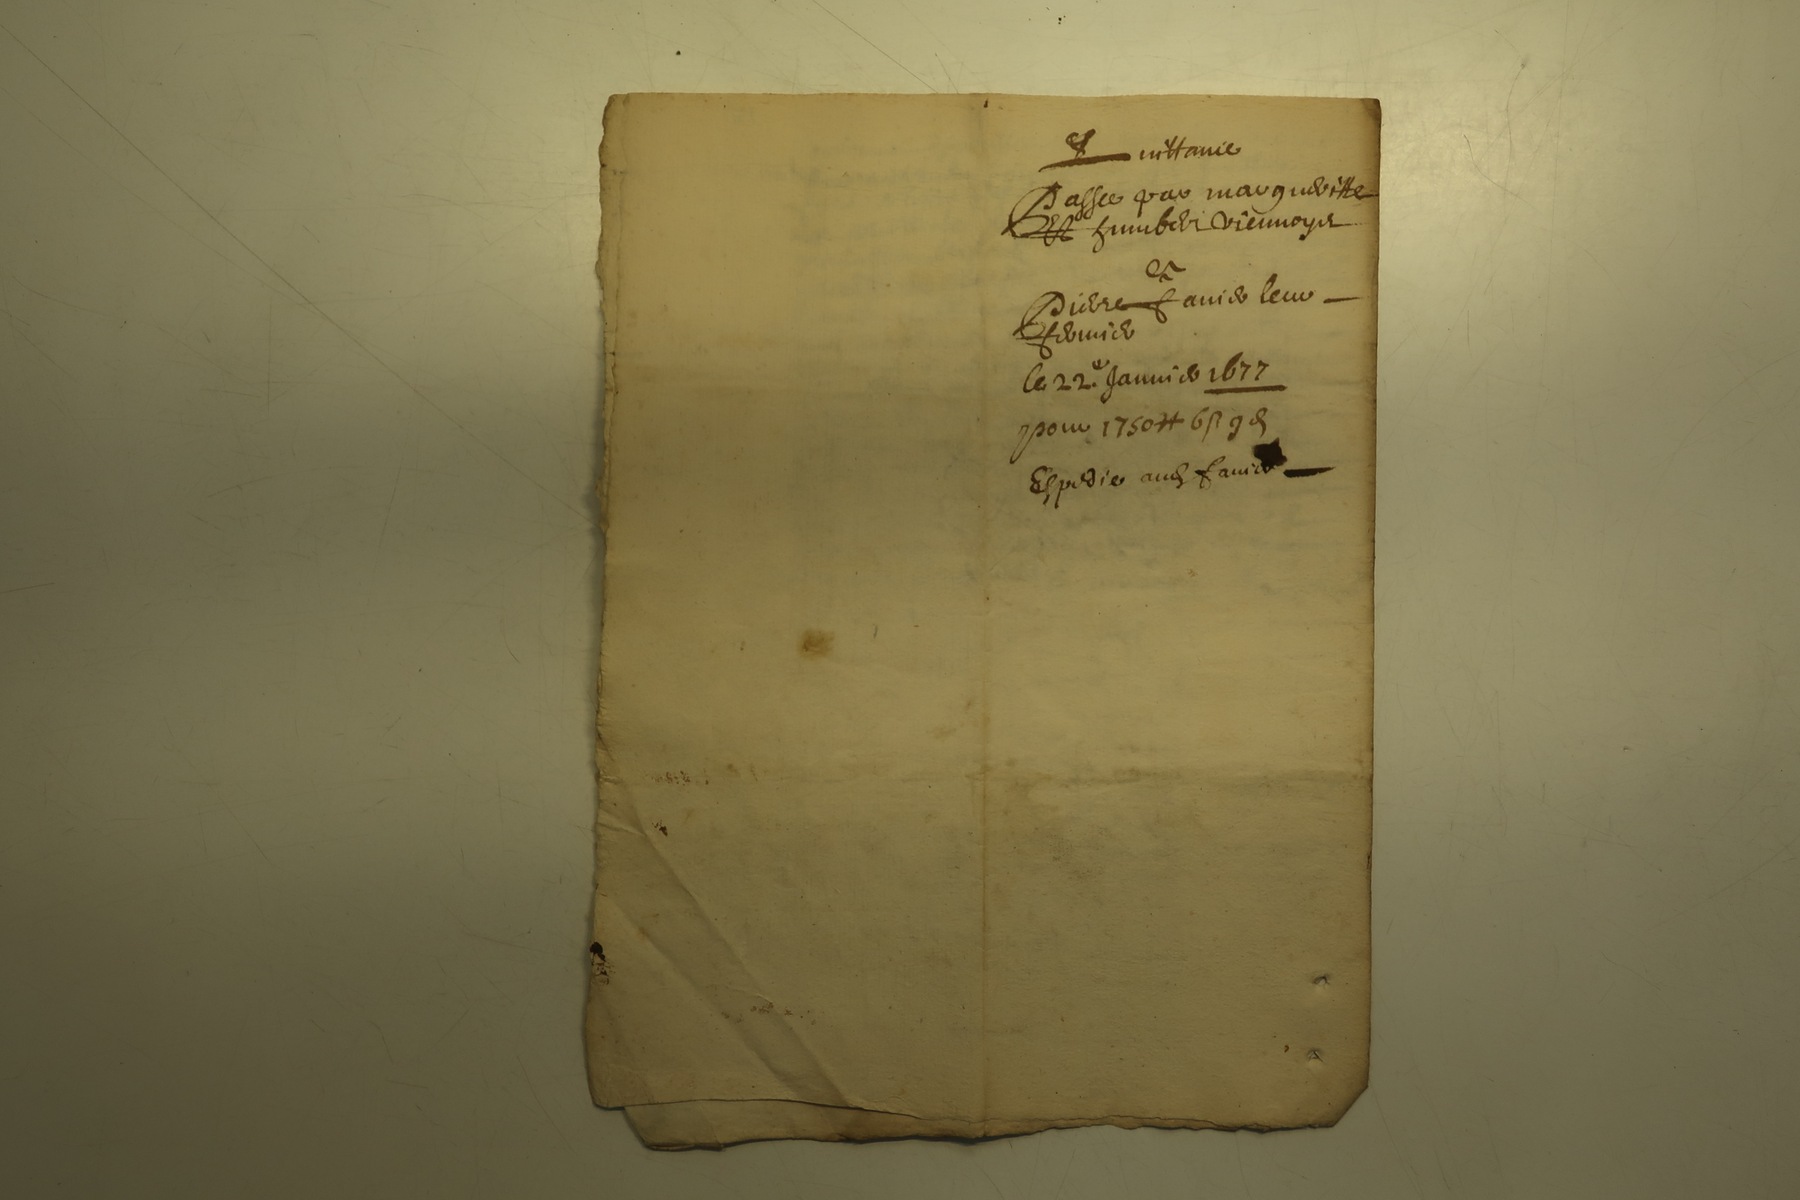 Quittance
Passee par margueritte
Et humbert viennoys
Et
Pierre favier leur
fermier
le 22e Janvier 1677
pour 1750 ₶ 6 ſ 9 d
Expedie aud favier